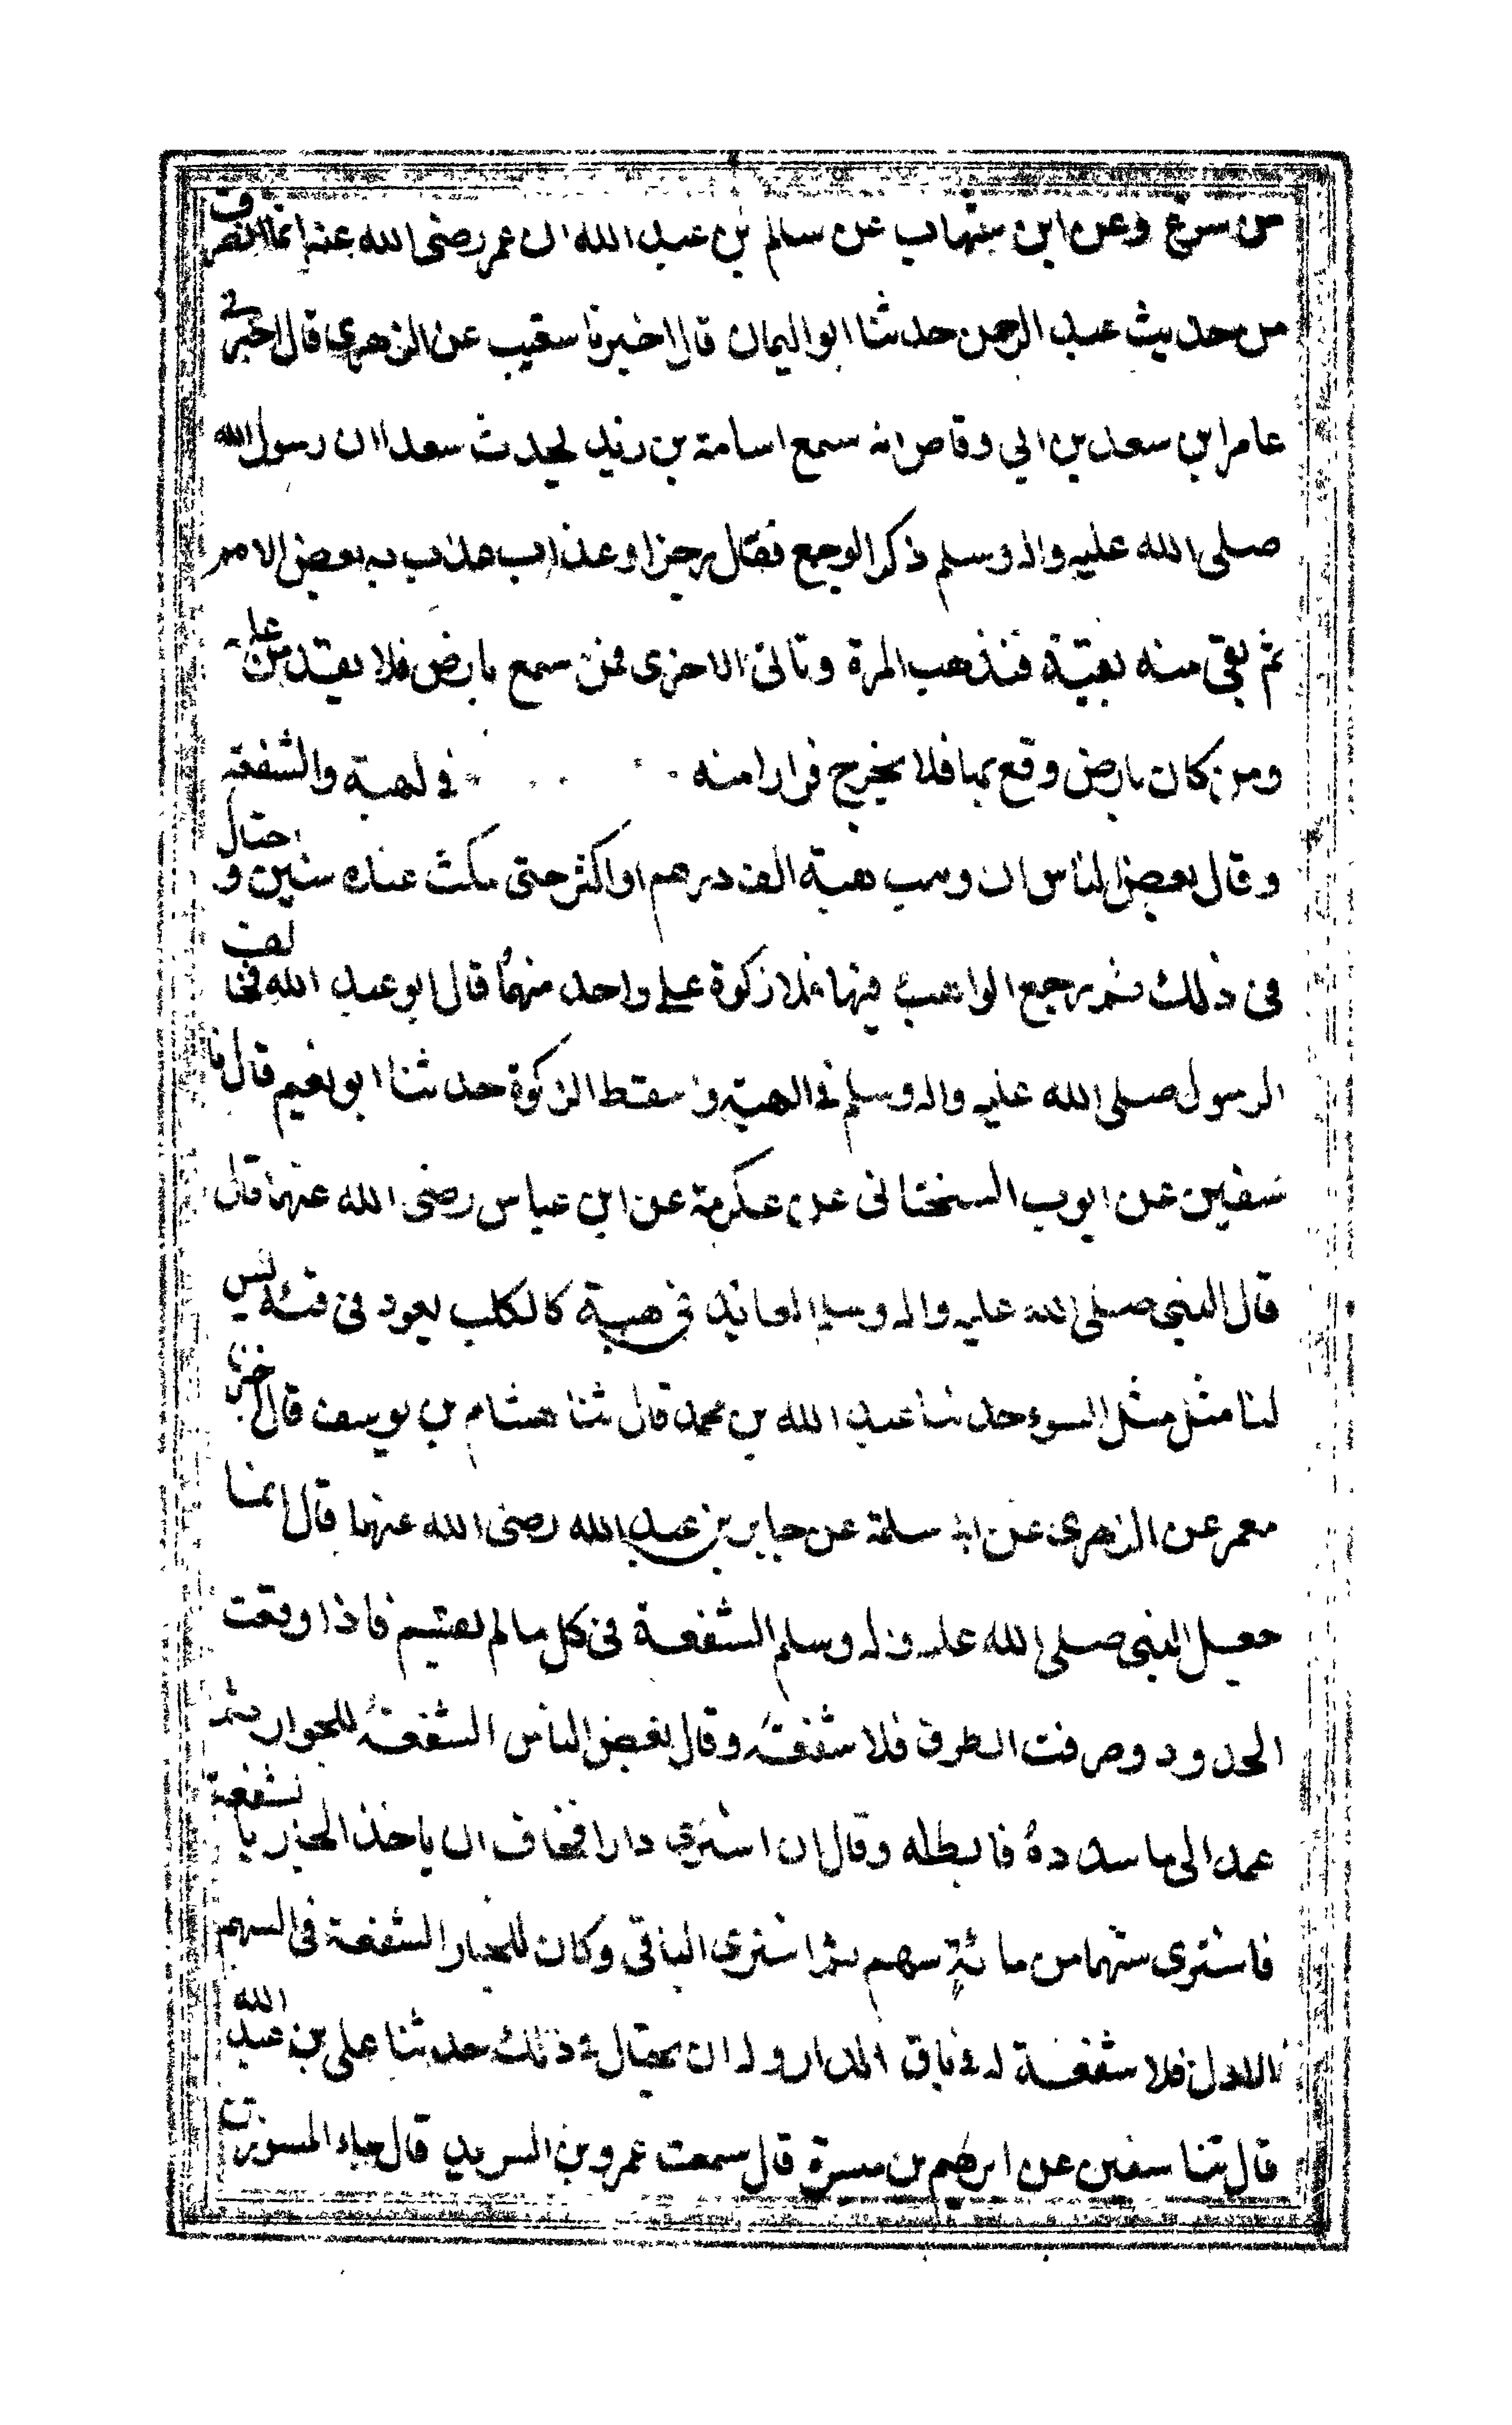 من سرغ وعن ابن شهاب عن سالم بن عبد الله ان عمر رضى الله عنه انما انصرف
من حديث عبد الرحمن حدثنا ابو اليمان قال اخبرنا شعيب عن الزهرى قال اخبرنى
عامر ابن سعد بن ابي وقاص انه سمع اسامة بن زيد يحدث سعدا ان رسول الله
صلى الله عليه واله وسلم ذكر الوجع فقال رجز او عذاب عذب به بعض الامم
ثم بقى منه بقية فتذهب المرة وتاتى الاخرى فمن سمع بارض فلا يقدمن عليه
ومن كان بارض وقع بها فلا يخرج فرارا منه في لهبة والشفعة
وقال بعض الناس ان وهب هبة الف درهم او اكثر حتى مكث عنده سنين و احتال
فى ذلك ثم رجع الواهب فيها فلا زكوة على واحد منهما قال ابو عبد الله فخالف
الرسول صلى الله عليه واله وسلم فى الهبة واسقط الزكوة حدثنا ابو نعيم قال نا
سفين عن ايوب السختانى عن عكرمة عن ابن عباس رضى الله عنهما قال
قال النبى صلى الله عليه واله وسلم العايد فى هبته كالكلب يعود فى قيئه ليس
لنا مثل مثل السوء حدثنا عبد الله بن محمد قال ثنا هشام بن يوسف قال اخبرنا
معمر عن الزهرى عن ابى سلمة عن جابر بن عبد الله رضى الله عنهما قال انما
جعل النبى صلى الله عليه واله وسلم الشفعة فى كل مالم يقسم فاذا وقعت
الحدود وصرفت الطرق فلا شفعة وقال بعض الناس الشفعة للجوار ثم
عمد الى ما سدده فابطله وقال ان اشترى دارا فخاف ان ياخذ الجار بالشفعة
فاشترى سهما من مائة سهم ثم اشترى الباقى وكان للجار الشفعة فى السهم
الاول فلا شفعة له فى باق الدار وله ان يحتال فى ذلك حدثنا على بن عبد الله
قال ثنا سفين عن ابرهيم بن ميسرة قال سمعت عمرو بن الشريد قال جاء المسور بن